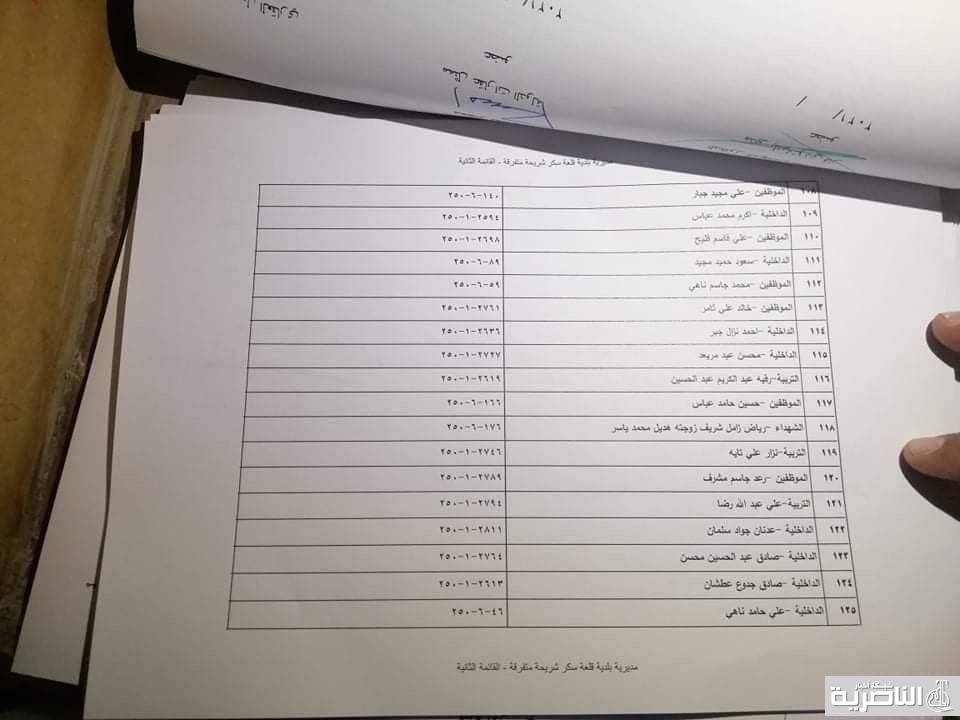 ٢٠٢١/
عضو
ممثل عقارات الدولة
٢٠٢١/ /
عضو
مديرية بلدية قلعة سكر شريحة متفرقة - القائمة الثانية
١٠٨ الموظفين -علي مجيد جبار ١٤٠-٦-٢٥٠
١٠٩ الداخلية -اكرم محمد عباس ٢٥٩٤-١-٢٥٠
١١٠ الموظفين -علي قاسم فليح ٢٦٩٨-١-٢٥٠
١١١ الداخلية -سعود حميد مجيد ٨٩-٦-٢٥٠
١١٢ الموظفين -محمد جاسم ناهي ٥٩-٦-٢٥٠
١١٣ الموظفين -خالد علي ثامر ٢٧٦١-١-٢٥٠
١١٤ الداخلية -احمد نزال جبر ٢٦٣٦-١-٢٥٠
١١٥ الداخلية -محسن عبد مريعد ٢٧٢٧-١-٢٥٠
١١٦ التربية-رقيه عبد الكريم عبد الحسين ٢٦١٩-١-٢٥٠
١١٧ الموظفين -حسين حامد عباس ١٦٦-٦-٢٥٠
١١٨ الشهداء -رياض زامل شريف زوجته هديل محمد ياسر ١٧٦-٦-٢٥٠
١١٩ التربية-نزار علي تايه ٢٧٤٦-١-٢٥٠
١٢٠ الموظفين -رعد جاسم مشرف ٢٧٨٩-١-٢٥٠
١٢١ التربية-علي عبد الله رضا ٢٧٩٤-١-٢٥٠
١٢٢ الداخلية -عدنان جواد سلمان ٢٨١١-١-٢٥٠
١٢٣ الداخلية -صادق عبد الحسين محسن ٢٧٦٤-١-٢٥٠
١٢٤ الداخلية -صادق جدوع عطشان ٢٦١٣-١-٢٥٠
١٢٥ الداخلية -علي حامد ناهي ٤٦-٦-٢٥٠
مديرية بلدية قلعة سكر شريحة متفرقة - القائمة الثانية
شبكة أخبار
الناصرية